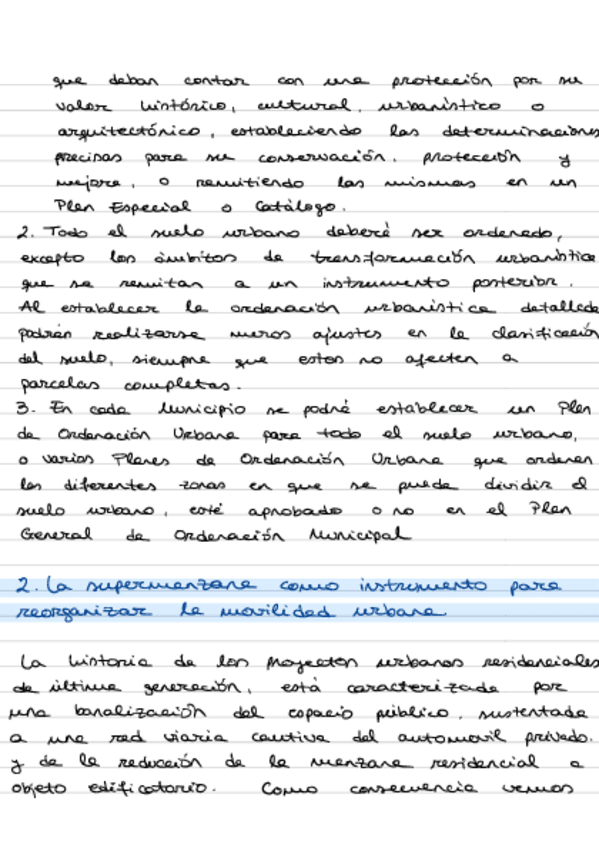 que deban contar con una protección por su
valor histórico, cultural, urbanístico o
arquitectónico, estableciendo las determinaciones
precisas para su conservación, protección y
mejora, o remitiendo las mismas en un
Plan Especial o Catálogo.
2. Todo el suelo urbano deberá ser ordenado,
excepto los ámbitos de transformación urbanística
que se remitan a un instrumento posterior.
Al establecer la ordenación urbanística detallada
podrán realizarse meros ajustes en la clasificación
del suelo, siempre que estos no afecten a
parcelas completas.
3. En cada Municipio se podrá establecer un Plan
de Ordenación Urbana para todo el suelo urbano,
o varios Planes de Ordenación Urbana que ordenen
las diferentes zonas en que se pueda dividir el
suelo urbano, esté aprobado o no en el Plan
General de Ordenación Municipal
2. La supermanzana como instrumento para
reorganizar la movilidad urbana
La historia de los proyectos urbanos residenciales
de última generación, está caracterizada por
una banalización del espacio público, sustentada
a una red viaria cautiva del automovil privado.
y de la reducción de la manzana residencial a
objeto edificatorio. Como consecuencia vemos